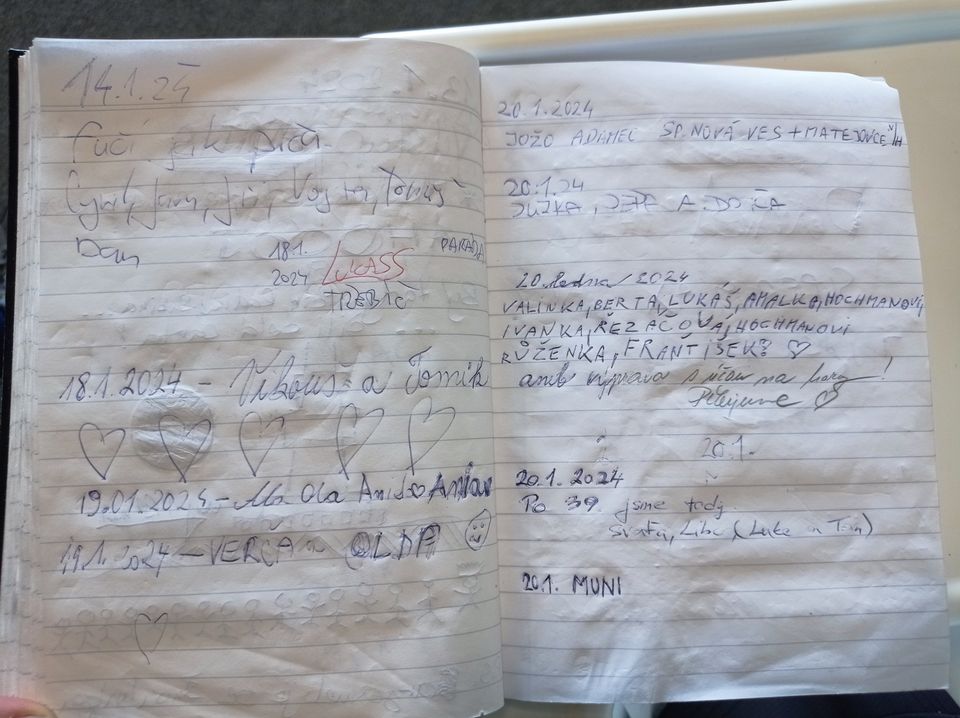 14.1.24
Fučí jak piča
Cyril, Jan, Jiří, Vojta, Tomáš
Dan
18.1.
2024
LUKASS
TŘEBÍČ
PARÁDA
18.1.2024 - Vikouš a Tomík
19.01.2024 - Ola
19.1.2024 - VERČA a OLDA
20.1.2024
JOŽO ADAMEC SP. NOVÁ VES + MATEJOVCE N/H
20.1.24
A
20. ledna 2024
VALINKA, BERTA, LUKÁŠ, AMALKA, HOCHMANOVI,
IVANKA, ŘEZÁČOVÁ, HOCHMANOVI
RŮŽENKA, FRANTIŠEK? ♡
aneb výprava s na hory!
♡
20.1.
20.1.2024
Po 39 jsme tady
20.1. MUNI